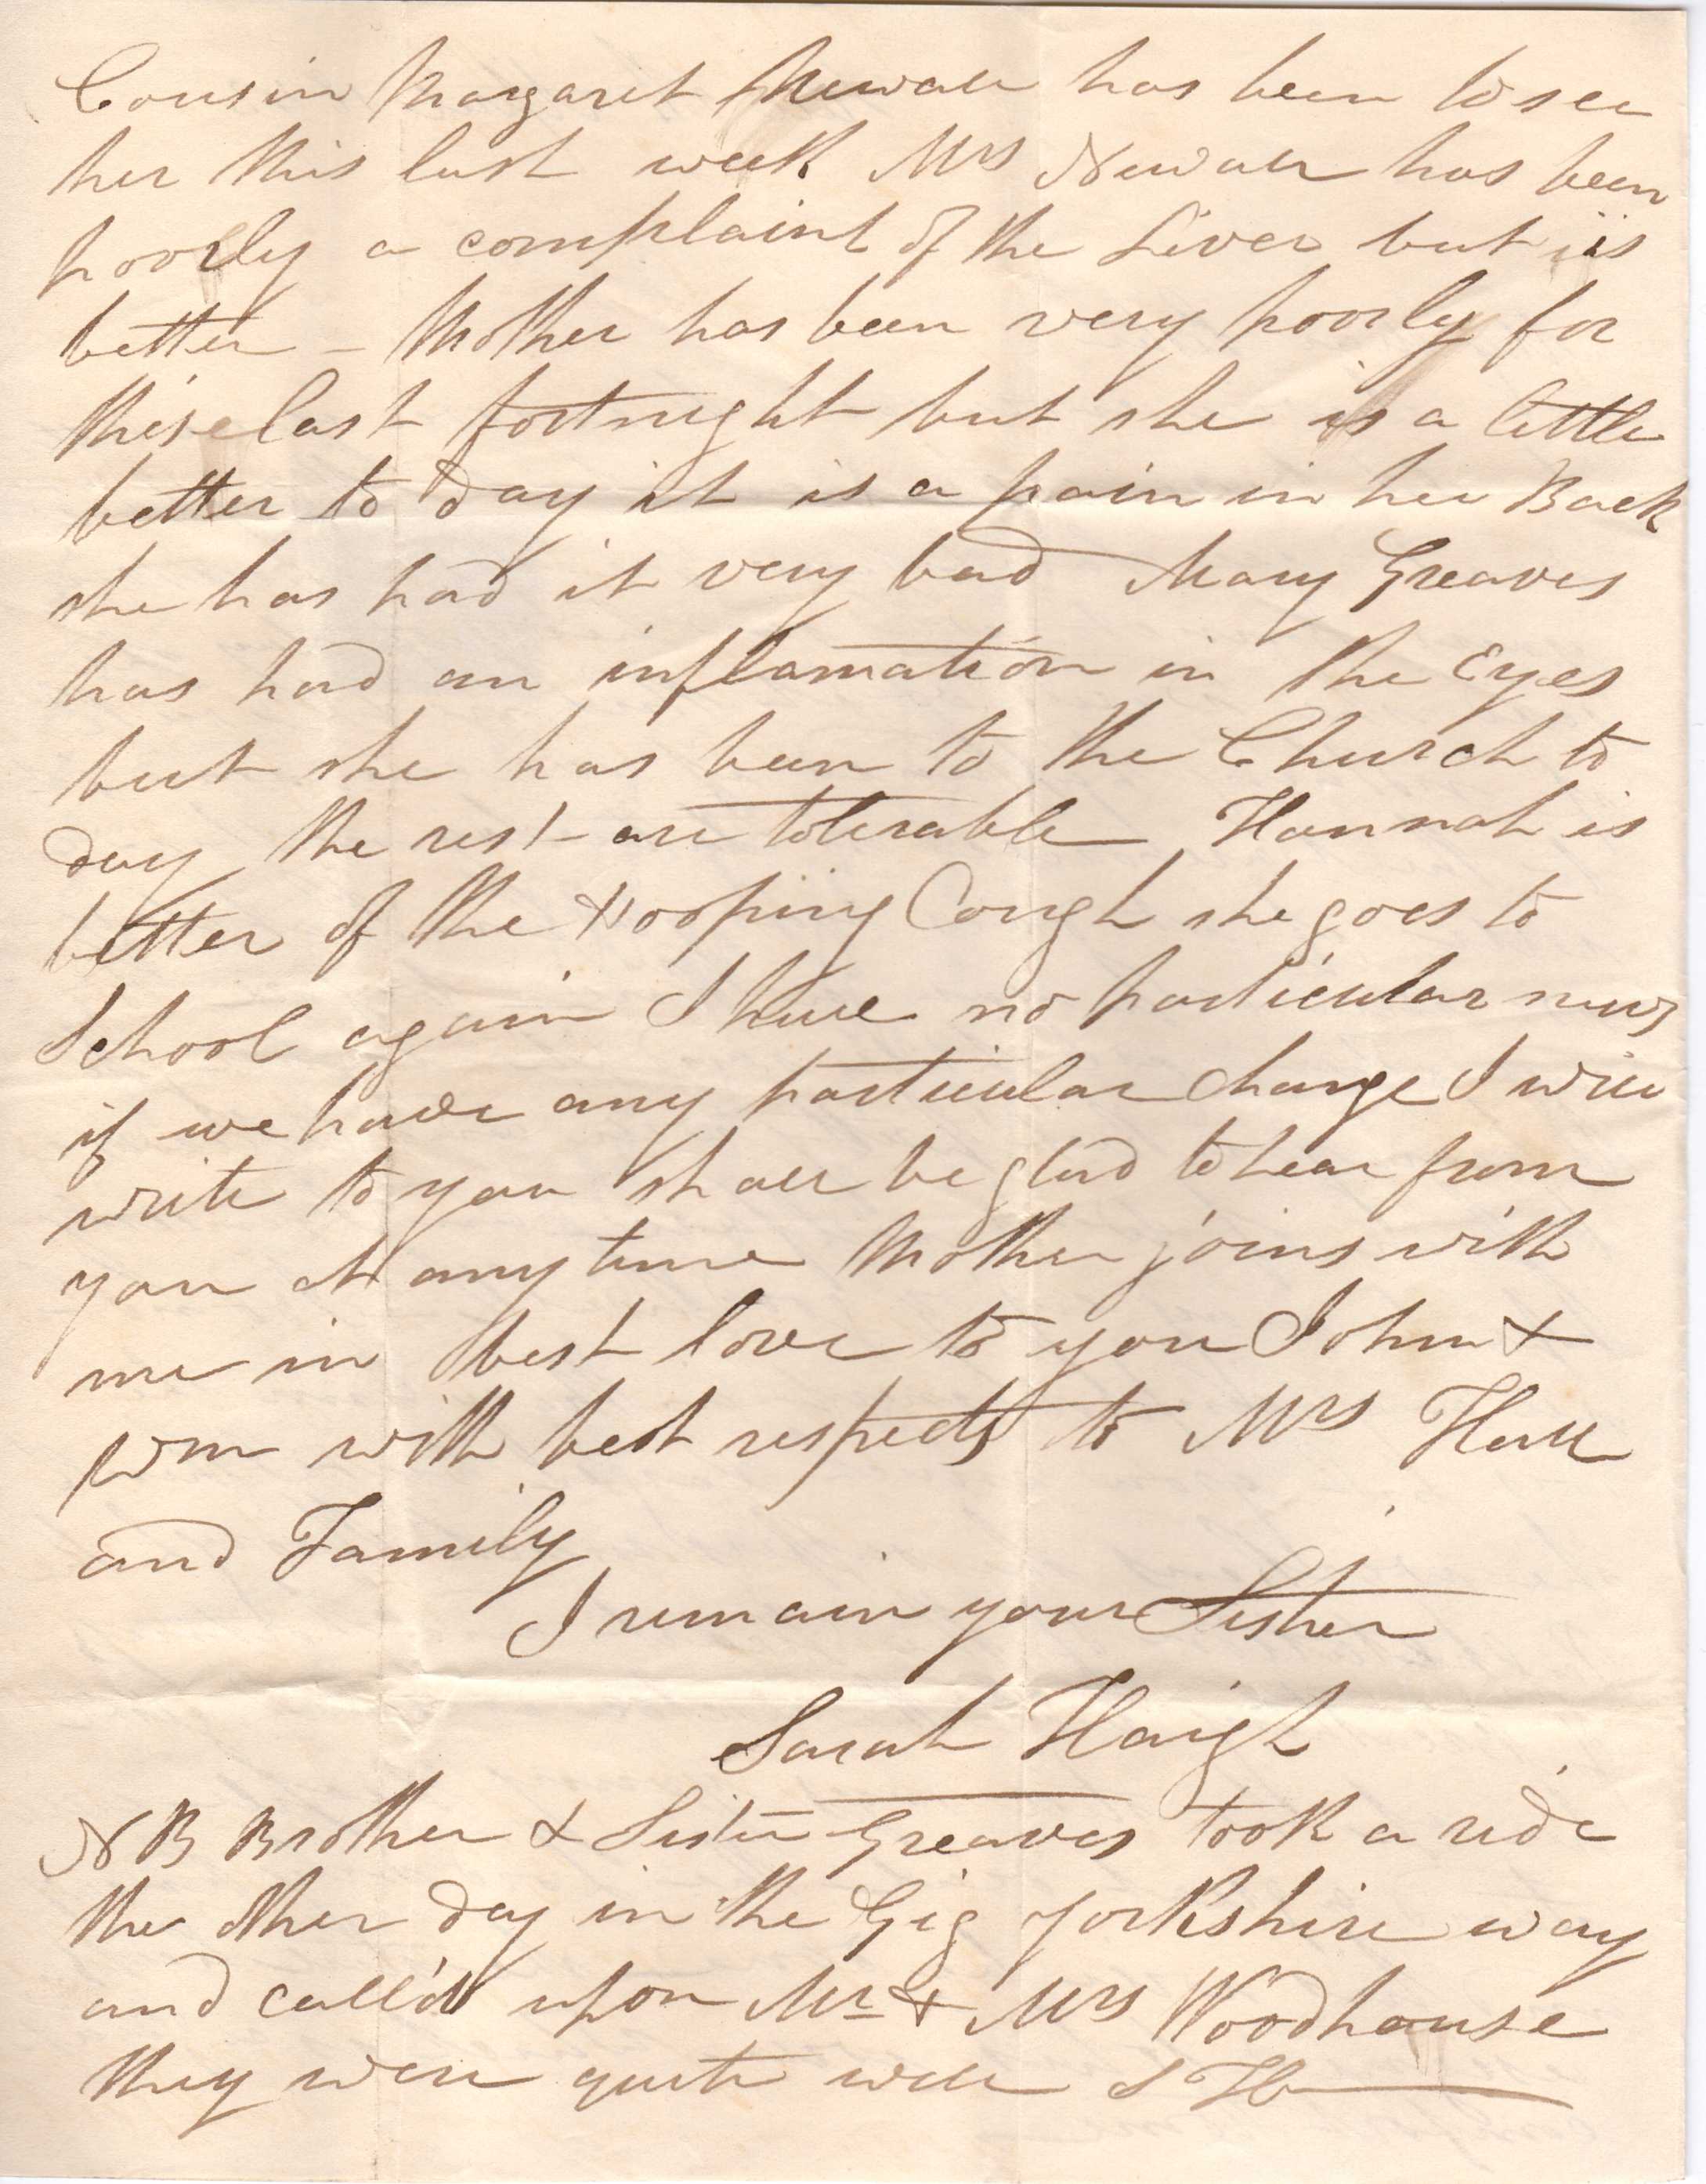 Cousin Margaret Newall has been to see
her this last week Mrs Newall has been
poorly a complaint of the Liver but is
better - Mother has been very poorly for
these last fortnight but she is a little
better to day it is a pain in her Back
she has had it very bad Mary Greaves
has had an inflamation in the Eyes
but she has been to the Church to
day the rest are tolerable Hannah is
better of the Hooping Cough she goes to
School again I have no particular news
if we have any particular change I will
write to you shall be glad to hear from
you at any time Mother joins with
me in best love to you John &
Wm with best respects to Mrs Hall
and Family
I remain your Sister
Sarah Haigh
NB Brother & Sister Greaves took a ride
the other day in the Gig Yorkshire way
and call'd upon Mr & Mrs Woodhouse
they were quite well S H